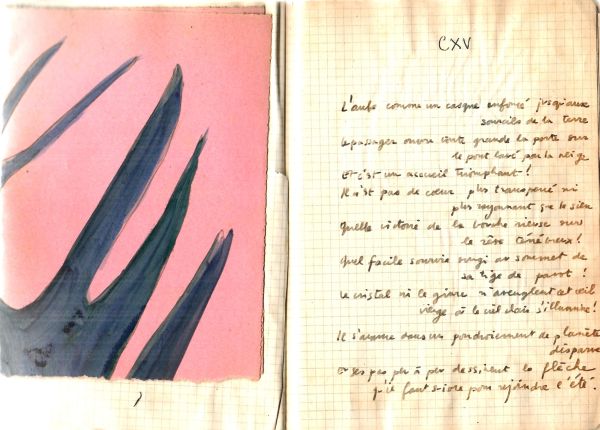 CXV
L'aube comme un casque enfoncé jusqu'aux
sourcils de la terre
Le passager ouvre toute grande la porte sur
le pont lavé par la neige
Et c'est un accueil triomphant !
Il n'est pas de cœur plus transparent ni
plus rayonnant que le sien
Quelle victoire de la bouche rieuse sur
le rêve ténébreux !
Quel facile sourire surgi au sommet de
sa tige de pavot !
Le cristal ni le givre n'aveuglent cet œil
vierge où le ciel clair s'illumine !
Il s'avance dans un poudroiement de planète
disparue
Et ses pas peu à peu dessinent la flèche
qu'il faut suivre pour rejoindre l'été.